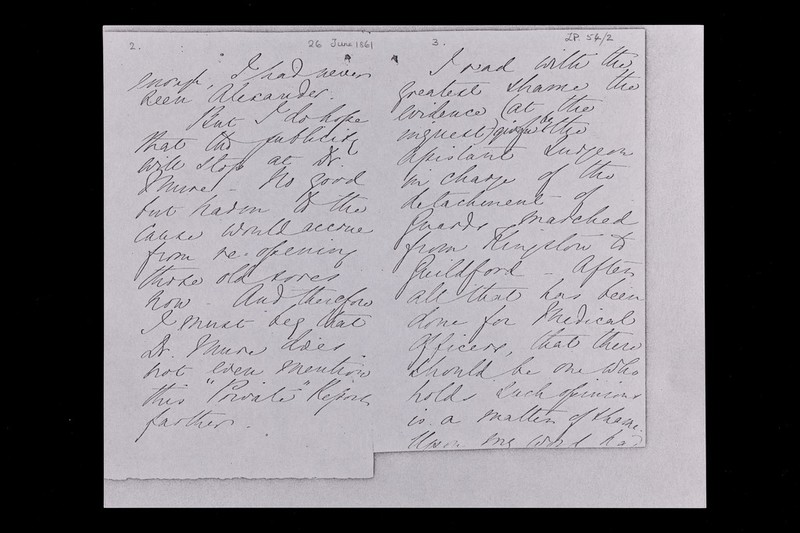 2.
26 June 1861
enough, I had never
seen Alexander.
But I do hope
that the publicity
will stop at Dr.
Muir - No good
but harm to the
cause would accrue
from re-opening
those old sores
now - And therefore
I must beg that
Dr. Muir does
not even mention
this "Private" Report
farther.
3.
LP. 54/2
I read with the
greatest shame the
evidence (at the
inquest) given by the
Assistant Surgeon
in charge of the
detachment of
Guards marched
from Kingston to
Guildford - After
all that has been
done for Medical
Officers, that there
should be one who
holds such opinions
is a matter of shame.
Upon my word